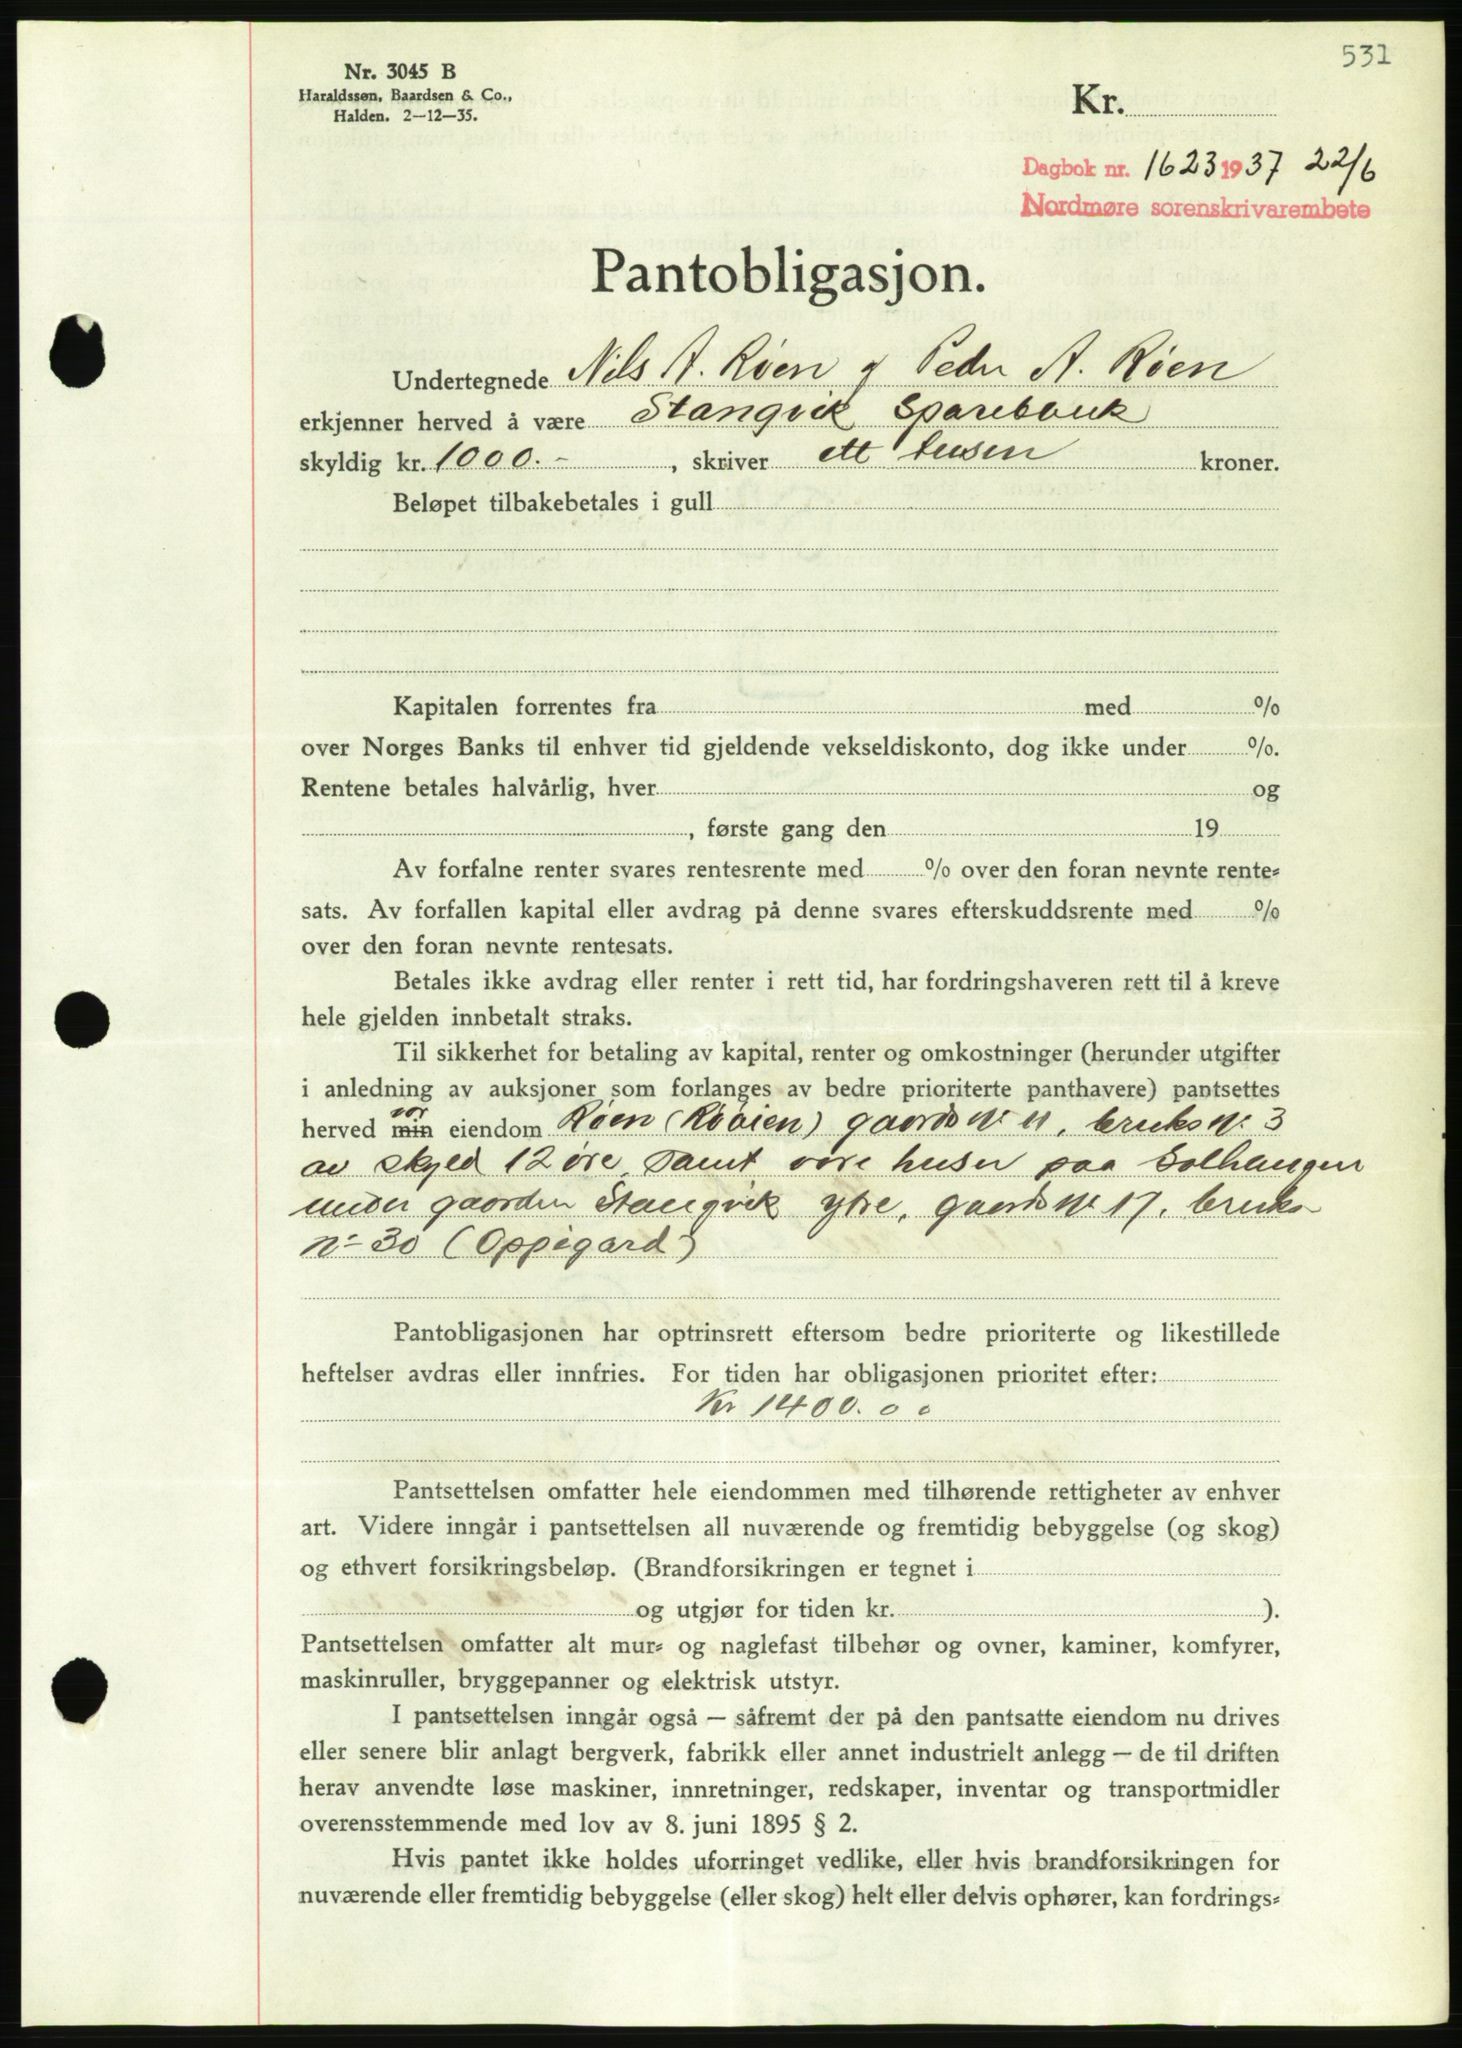 531
Nr. 3045 B
Haraldssøn, Baardsen & Co.,
Halden. 2—12—35.
Kr.
Dagbok nr. 1623 1937 22/6
Nordmøre sorenskrivarembete
Pantobligasjon.
Undertegnede Nils A. Røen og Peder A. Røen
erkjenner herved å være Stangvik Sparebank
skyldig kr. 1000.-, skriver ett tusen kroner.
Beløpet tilbakebetales i gull
Kapitalen forrentes fra med %
over Norges Banks til enhver tid gjeldende vekseldiskonto, dog ikke under %.
Rentene betales halvårlig, hver og
, første gang den 19
Av forfalne renter svares rentesrente med % over den foran nevnte rente-
sats. Av forfallen kapital eller avdrag på denne svares efterskuddsrente med %
over den foran nevnte rentesats.
Betales ikke avdrag eller renter i rett tid, har fordringshaveren rett til å kreve
hele gjelden innbetalt straks.
Til sikkerhet for betaling av kapital, renter og omkostninger (herunder utgifter
i anledning av auksjoner som forlanges av bedre prioriterte panthavere) pantsettes
vor
herved min eiendom Røen (Røöien) gaards No 11, bruks No. 3
av skyld 12 øre, samt våre huser paa Solhaugen
under gaarden Stangvik ytre, gaards No 17, bruks
No 30 (Oppigard)
Pantobligasjonen har optrinsrett eftersom bedre prioriterte og likestillede
heftelser avdras eller innfries. For tiden har obligasjonen prioritet efter:
Kr 1400.00
Pantsettelsen omfatter hele eiendommen med tilhørende rettigheter av enhver
art. Videre inngår i pantsettelsen all nuværende og fremtidig bebyggelse (og skog)
og ethvert forsikringsbeløp. (Brandforsikringen er tegnet i
og utgjør for tiden kr. ).
Pantsettelsen omfatter alt mur- og naglefast tilbehør og ovner, kaminer, komfyrer,
maskinruller, bryggepanner og elektrisk utstyr.
I pantsettelsen inngår også — såfremt der på den pantsatte eiendom nu drives
eller senere blir anlagt bergverk, fabrikk eller annet industrielt anlegg — de til driften
herav anvendte løse maskiner, innretninger, redskaper, inventar og transportmidler
overensstemmende med lov av 8. juni 1895 § 2.
Hvis pantet ikke holdes uforringet vedlike, eller hvis brandforsikringen for
nuværende eller fremtidig bebyggelse (eller skog) helt eller delvis ophører, kan fordrings-